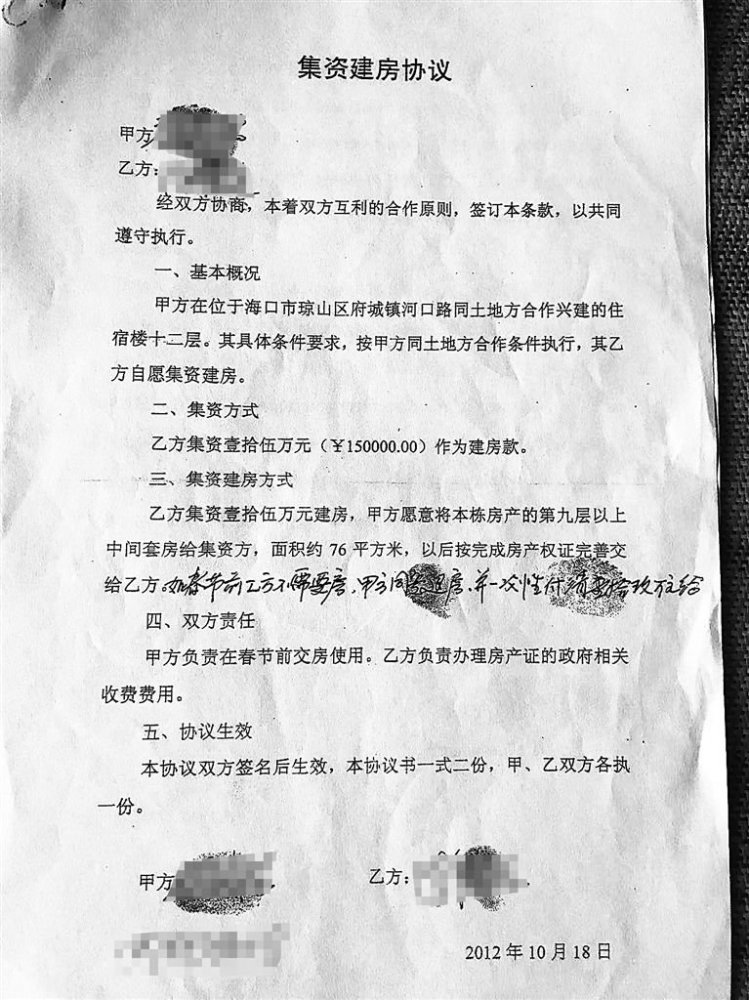 集资建房协议
甲方
乙方：
经双方协商，本着双方互利的合作原则，签订本条款，以共同
遵守执行。
一、基本概况
甲方在位于海口市琼山区府城镇河口路同土地方合作兴建的住
宿楼十二层。其具体条件要求，按甲方同土地方合作条件执行，其乙
方自愿集资建房。
二、集资方式
乙方集资壹拾伍万元（￥150000.00）作为建房款。
三、集资建房方式
乙方集资壹拾伍万元建房，甲方愿意将本栋房产的第九层以上
中间套房给集资方，面积约 76 平方米，以后按完成房产权证完善交
给乙方。如春节前乙方不需要房，甲方同意退房，并一次性付清壹拾玖万
四、双方责任
甲方负责在春节前交房使用。乙方负责办理房产证的政府相关
收费费用。
五、协议生效
本协议双方签名后生效，本协议书一式二份，甲、乙双方各执
一份。
甲方
乙方：
2012 年 10 月 18 日